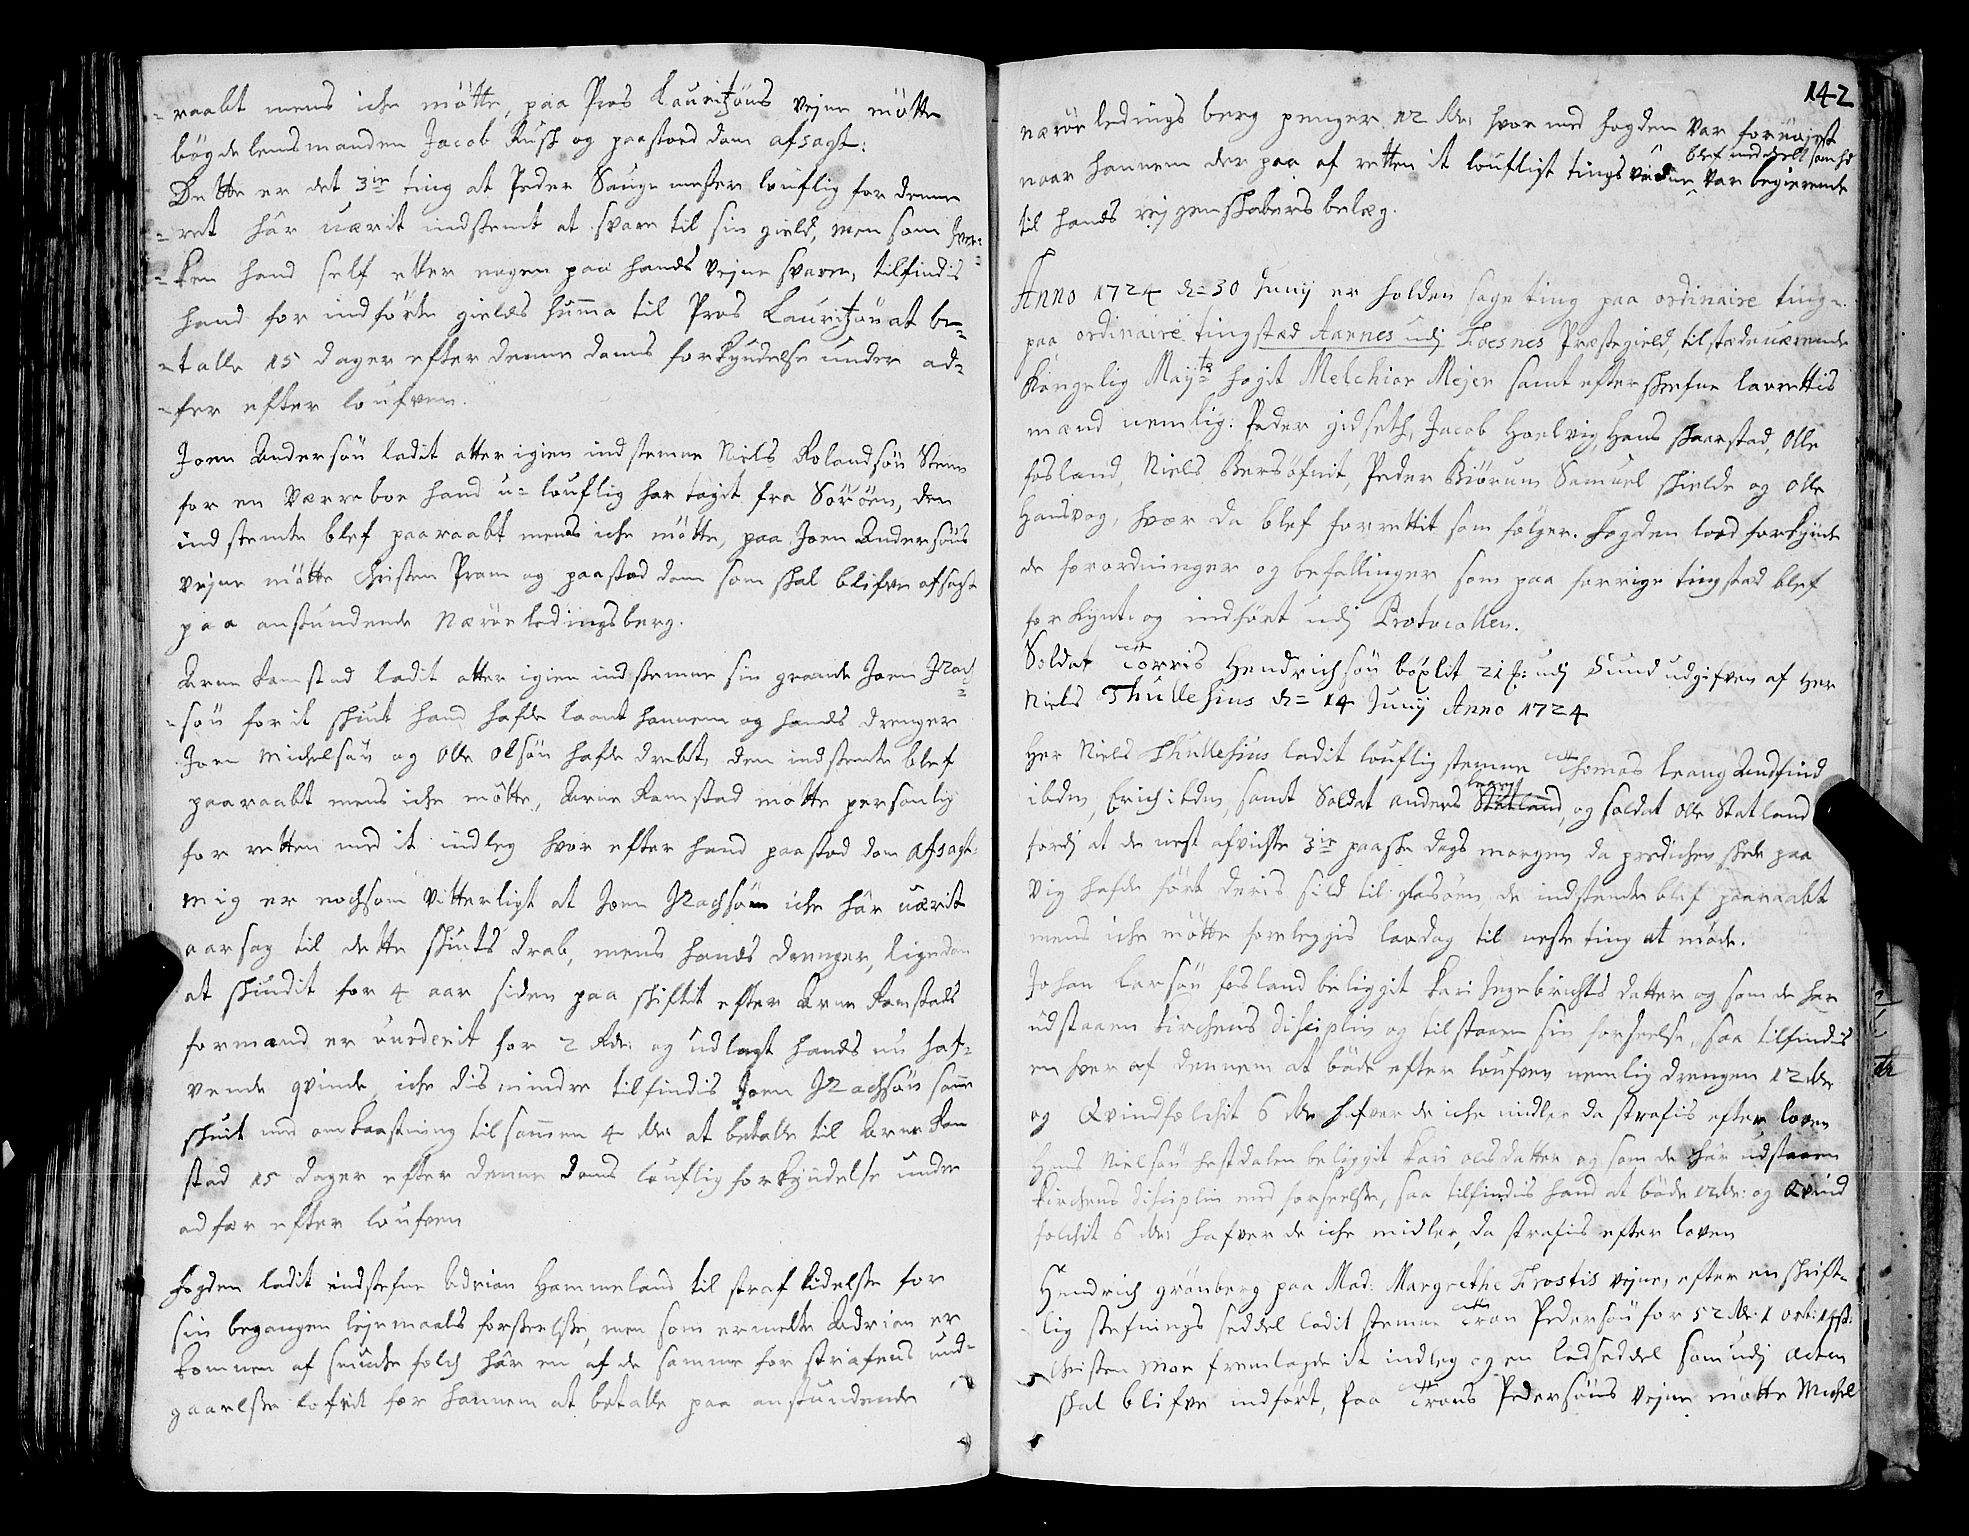 raabt mens iche mötte, paa Pros Lauritzöns vejne mötte
bögdelensmanden Jacob Rush og paastoed dom afsagt:
Dette er det 3ie ting at Peder Sauge mester louflig for denne
ret hår værit indstemt at svare til sin gield, men som hver-
ken hand self eller nogen paa hands vejne svarer, tilfindis
hand for indförte gields summa til Pros Lauritzön at be-
talle 15 dager efter denne doms forkyndelse under ad-
fer efter loufven.
Joen Andersön ladit atter igien indstemne Niels Rolandsön Steen
for en Værreboe hand u-louflig har tagit fra Söröen, den
indstemte blef paaraabt mens iche mötte, paa Joen Andersöns
vejne mötte Christen Pram og paastod dom som skal blifve afsagt
paa anstundende Næröe Ledingsberg.
Arne Ramstad ladit atter igien indstemne sin grande Joen Isach-
sön for it skiut hand hafde laant hannem og hands drenger
Joen Michelsön og Olle Olsön hafde drebt, den indstemte blef
paaraabt mens iche mötte, Arne Ramstad mötte personlig
for retten med it indleg hvor efter hand paastod dom afsagt:
mig er nochsom vitterligt at Joen Isachsön iche hår værit
aarsag til dette skiuts drab, mens hands drenger, ligedan
at skiudit for 4 aar siden paa skiftit efter Arne Ramstads
formand er vurderit for 2 Rdr: og udlagt hands nu haf-
vende qvinde, iche dis mindre tilfindis Joen Isachsön samme
skiut med omkaastning tilsammen 4 Rdr: at betalle til Arne Ram
stad 15 dager efter denne doms louflig forkyndelse under
adfær efter loufven
Fogden ladit indstefne Adrian Hammeland til straf lidelse for
sin begangen lejermaals forseelse, men som ermelte Adrian er
kommen af siuche folch hår en af de samme for strafens und-
gaaelse lofvit for hannem at betalle paa anstundende
142
næröe ledings berg penger 12 Rdr: hvor med fogden var fornöyet
blef meddelt som hd
naar hannem der paa af retten it loufligt tings vidne var begierende
til hands rejgenskabers belæg.
Anno 1724 d= 30 Junij er holden sageting paa ordinaire ting-
paa ordinaire tingstæd Aannes udj Foesnes Præstegield, tilstædeværende
Kongelig Mayts fogit Melchior Mejer samt efterskrefne laurettis
mænd nemlig: Peder Gidseth, Jacob Hoelvig, Hans Skarstad, Olle
fosland, Niels Bersöfnit, Peder Biörum Samuel Skielde og Olle
Hansvog, hvor da blef forrettit som fölger. Fogden lood forkynde
de forordninger og befallinger som paa forrige tingstad blef
forkynt og indfört udj Protocollen.
Soldat Torris Hendrichsön böxlit 21 udj Sund udgifven af Her
Niels Thullesius d= 14 Junij Anno 1724
Her Niels Thullesius ladit louflig stemne Thomas Leang Andfind
ibdm, Erich ibdm, samt Soldat Anders Statland, og soldat Olle Statland
fordj at de nest afvichte 3ie paaske dags morgen da predichen skede paa
Vig hafde fört deris sild til flasöen, de indstemte blef paaraabt
mens iche mötte foreleggis lavdag til neste ting at möde.
Johan Larsön fosland beliggit Kari Ingebrichts datter og som de har
udstaaen Kirchens disciplin og tilstaaen sin forseelse, saa tilfindis
en hver af dennem at böde efter loufven nemlig drengen 12 Rdr
og Qvindfolchit 6 Rdr hafver de iche midler da strafis efter loven
Hans Nielsön hestdalen beliggit Kari Olsdatter og som de hår udstaaen
Kirchens disciplin med forseelse, saa tilfindis hand at böde 12 Rdr: og Qvind
folchit 6 Rdr: hafver de iche midler, da strafis efter loven
Hendrich grönberg paa Mad: Margrethe Frostis vejne, efter en skrift-
lig stefnings seddel ladit stemne Tron Pedersön for 52 Rdr 1 ort:
Christen Moe fremlagde it indleg og en ladseddel som udj acten
skal blifve indfört, paa Trons Pedersöns vejne mötte Michel